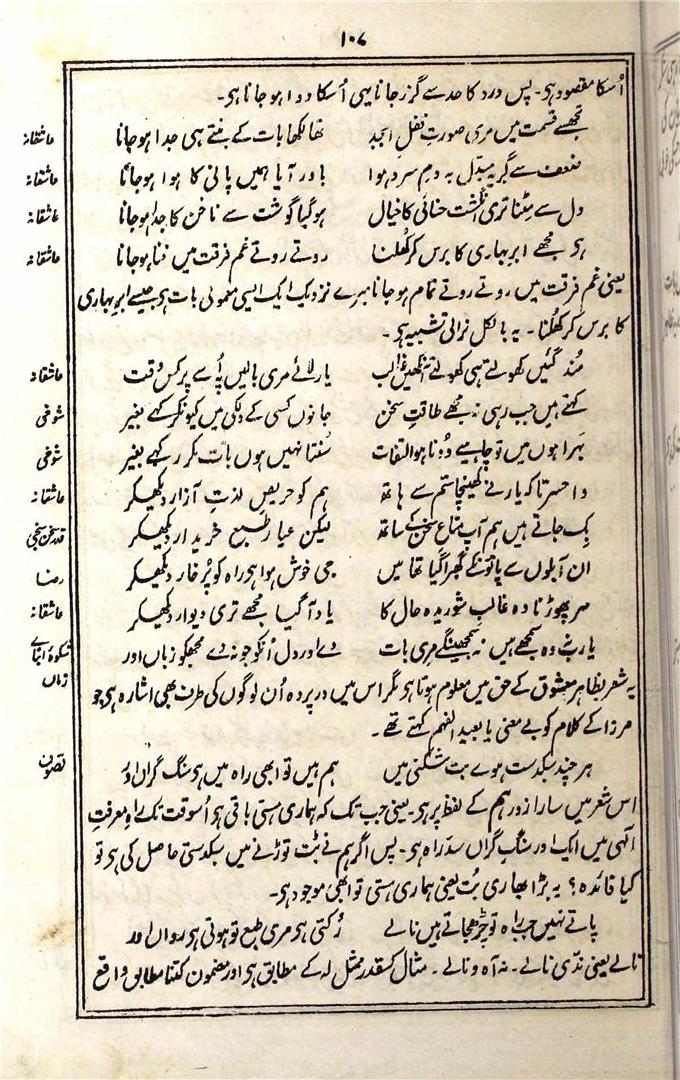 ۱۰۷
اُسکا مقصود ہی۔ پس درد کا حد سے گزر جانا یہی اُسکا دوا ہو جانا ہی۔
تجھسے قسمت میں مری صورتِ قفلِ ابجد تھا لکھا بات کے بنتے ہی جدا ہو جانا عاشقانہ
ضعف سے گریہ مبدّل بہ دمِ سرد ہوا باور آیا ہمیں پانی کا ہوا ہو جانا عاشقانہ
دل سے مِٹنا تری انگشت حنائی کا خیال ہو گیا گوشت سے ناخن کا جدا ہو جانا عاشقانہ
ہی مجھے ابرِ بہاری کا برس کر کھُلنا روتے روتے غمِ فرقت میں فنا ہو جانا عاشقانہ
یعنی غم فرقت میں روتے روتے تمام ہو جانا میرے نزدیک ایک ایسی معمولی بات ہی جیسے ابرِ بہاری
کا برس کر کھُلنا۔ یہ بالکل نرالی تشبیہ ہی۔
مُند گئیں کھولتے ہی کھولتے آنکھیں غالب یار لائے مری بالیں پہ اُسے پر کس وقت عاشقانہ
کہتے ہیں جب رہی نہ مجھے طاقتِ سخن جانوں کسی کے دل کی میں کیونکر کہے بغیر شوخی
بہرا ہوں میں تو چاہیے دُونا ہو التفات سُنتا نہیں ہوں بات مکرر کہے بغیر شوخی
وا حسرتا کہ یار نے کھینچا ستم سے ہاتھ ہم کو حریصِ لذتِ آزار دیکھکر عاشقانہ
بِک جاتے ہیں ہم آپ متاعِ سخن کے ساتھ لیکن عیارِ طبعِ خریدار دیکھکر قدر سخن سنجی
ان آبلوں سے پانوں کے گھبرا گیا تھا میں جی خوش ہوا ہی راہ کو پُر خار دیکھکر رضا
سر پھوڑنا وہ غالبِ شوریدہ حال کا یاد آ گیا مجھے تری دیوار دیکھکر عاشقانہ
یارب وہ نہ سمجھے ہیں نہ سمجھینگے مری بات دے اور دل اُنکو جو نہ دے مجھکو زباں اور شکوۂ ابنائے زماں
یہ شعر بظاہر معشوق کے حق میں معلوم ہوتا ہی مگر اس میں در پردہ اُن لوگوں کی طرف بھی اشارہ ہی جو
مرزا کے کلام کو بے معنی یا بعید الفہم کہتے تھے۔
ہر چند سبکدست ہوے بت شکنی میں ہم ہیں تو ابھی راہ میں ہی سنگِ گراں اور تصوف
اس شعر میں سارا زور ہم کے لفظ پر ہی۔ یعنی جب تک کہ ہماری ہستی باقی ہی اُسوقت تک راہِ معرفتِ
الٰہی میں ایک اور سنگِ گراں سدِّ راہ ہی۔ پس اگر ہم نے بُت توڑنے میں سبکدستی حاصل کی ہی تو
کیا فائدہ؟ یہ بڑا بھاری بُت یعنی ہماری ہستی تو ابھی موجود ہی۔
پاتے نہیں جب راہ تو چڑھ جاتے ہیں نالے رُکتی ہی مری طبع تو ہوتی ہی رواں اور
نالے یعنی ندّی نالے۔ نہ آہ و نالے۔ مثال کسقدر ممثل لہ کے مطابق ہی اور مضمون کتنا مطابق واقع